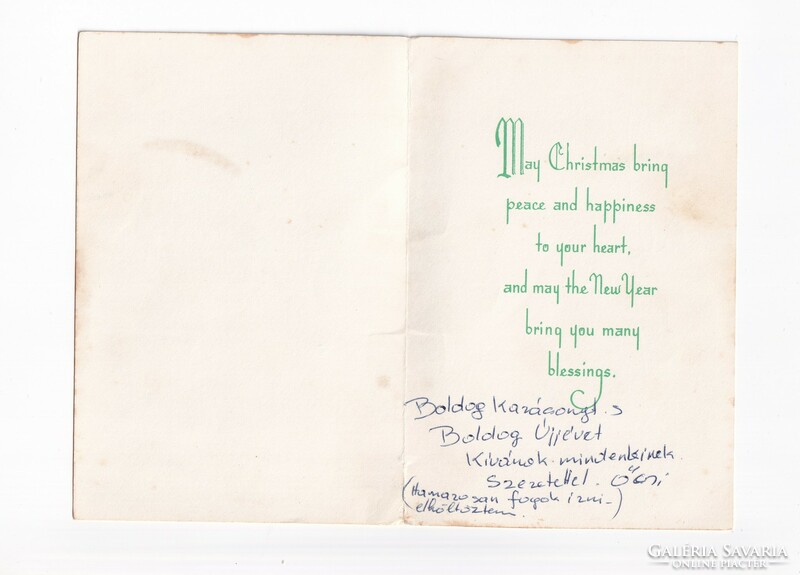 May Christmas bring
peace and happiness
to your heart,
and may the New Year
bring you many
blessings.
Boldog Karácsonyt s
Boldog Újjévet
Kívánok mindenkinek.
Szeretettel. Öcsi
(Hamarosan fogok írni-)
elköltöztem.
GALÉRIA SAVARIA
ONLINE PIACTÉR